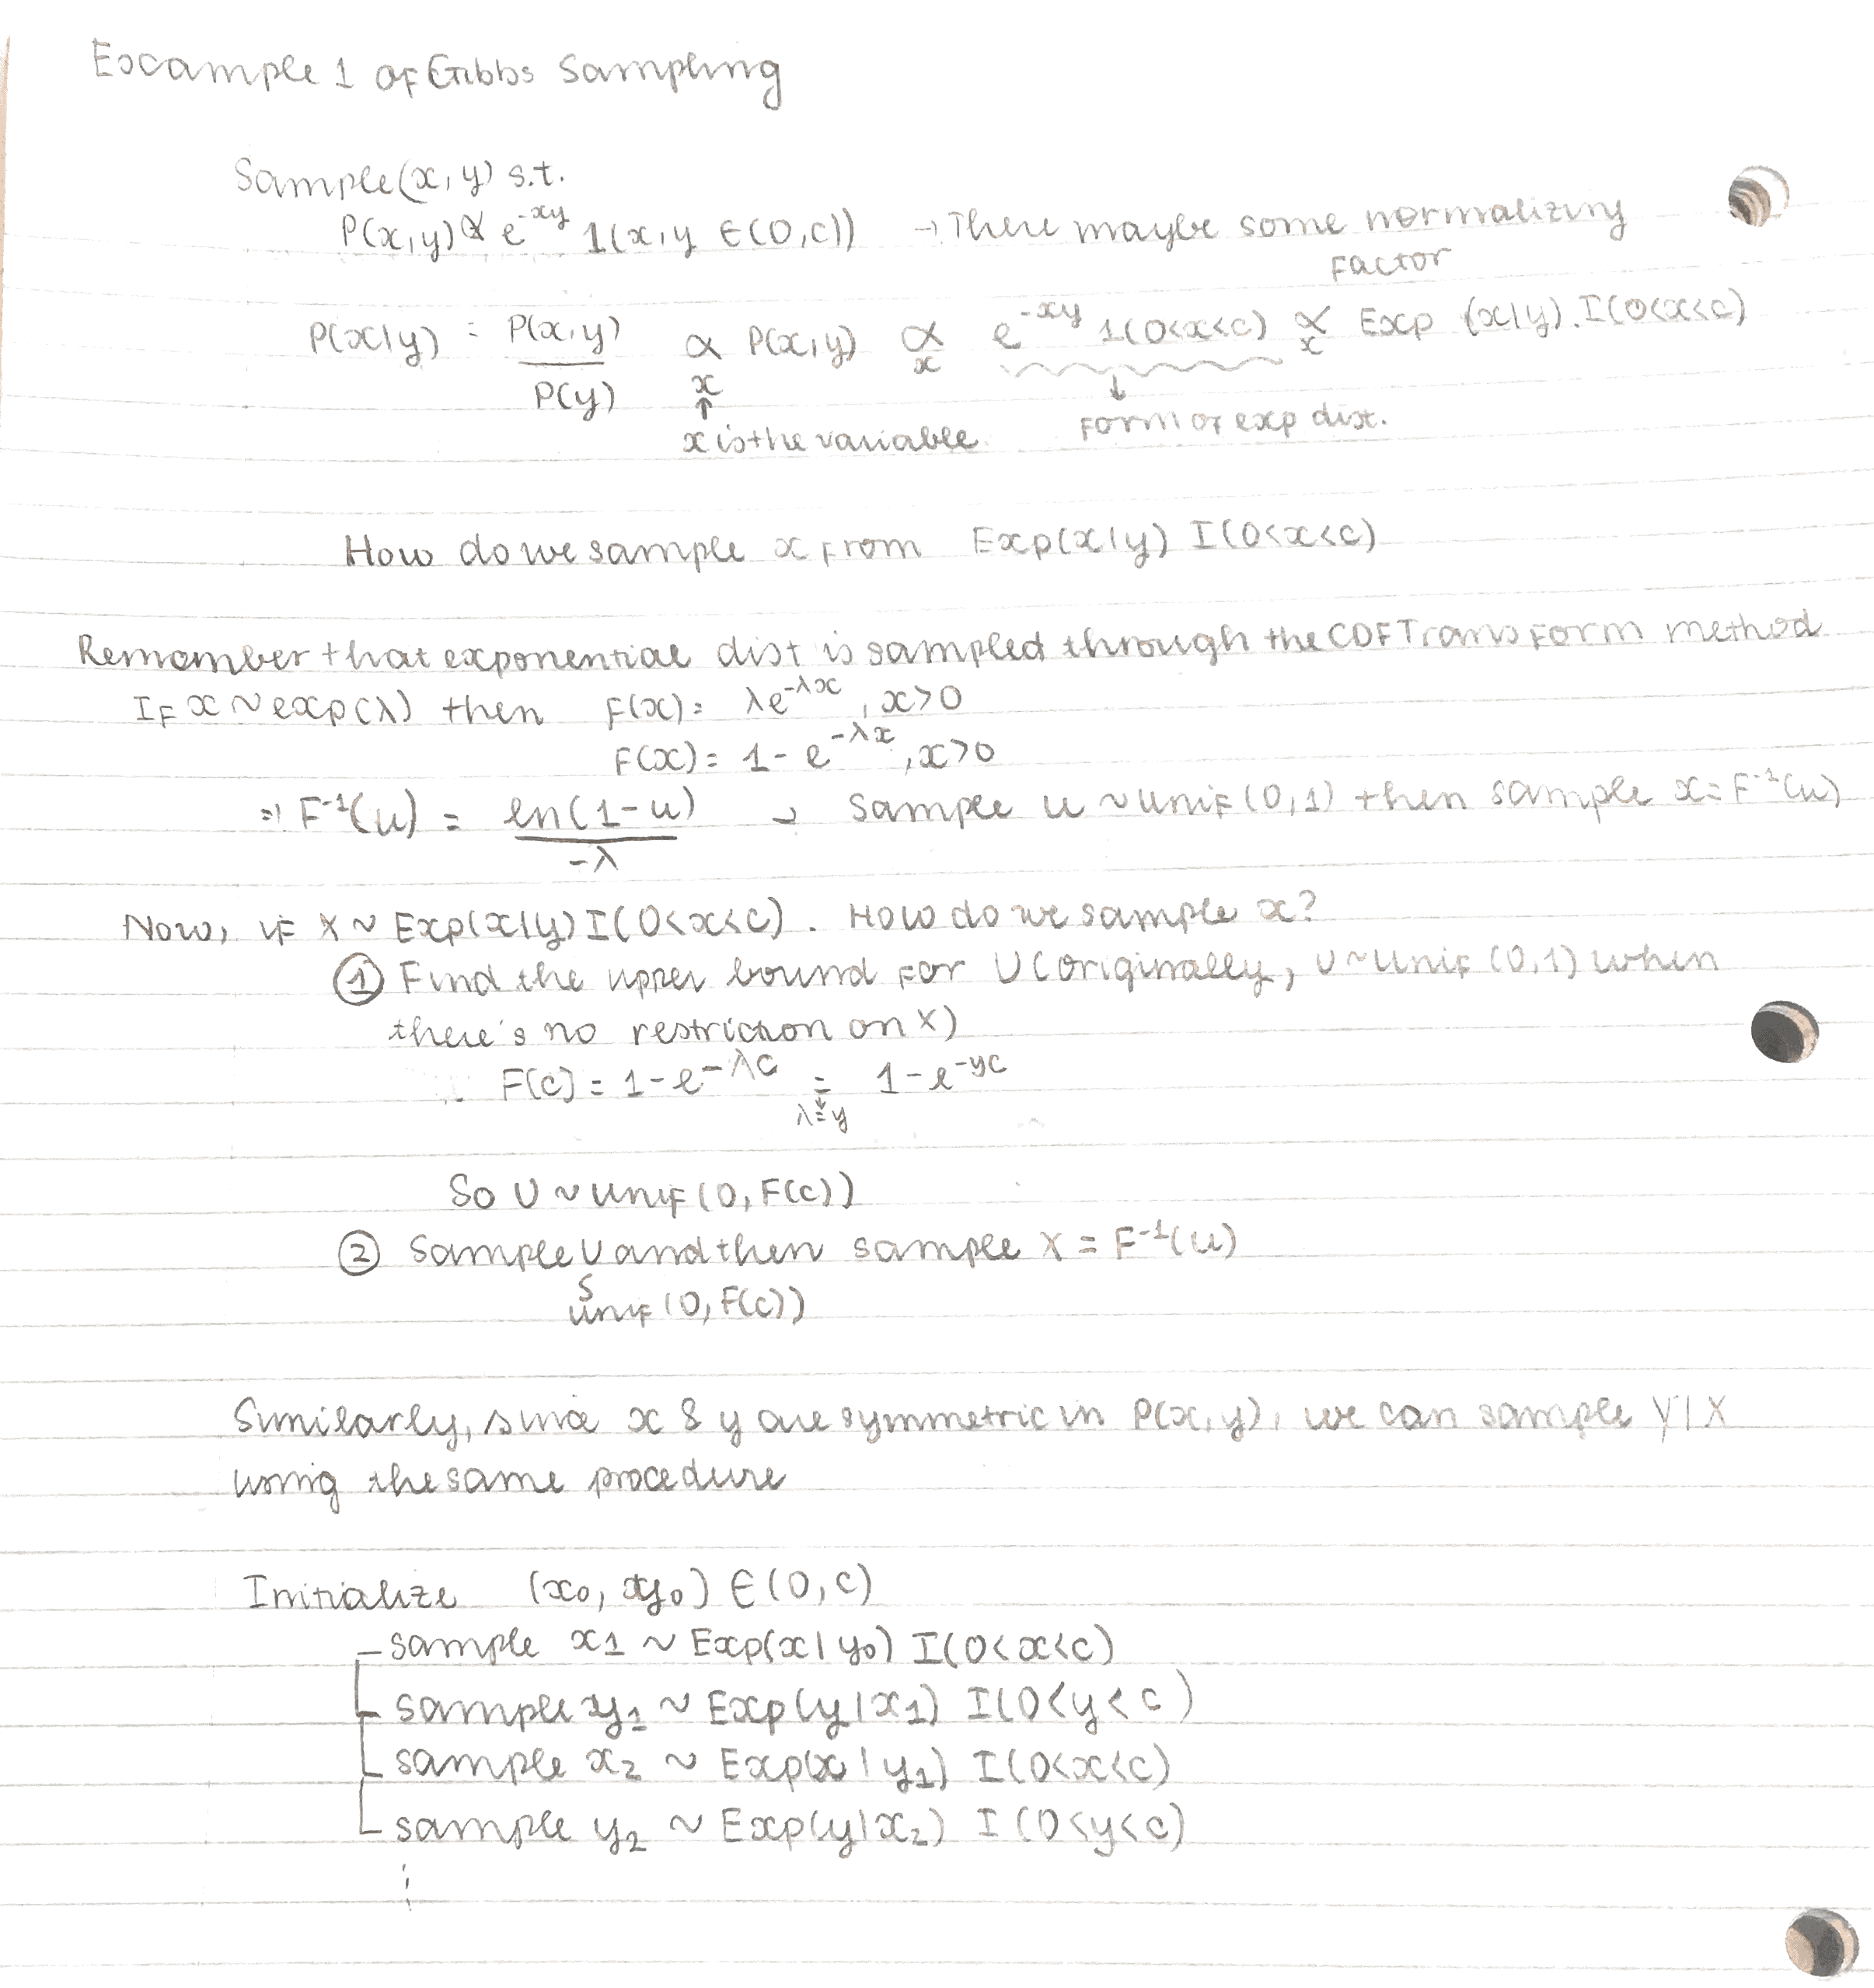 Example 1 of Gibbs Sampling
Sample (x, y) s.t.
P(x,y) ∝ e^{-xy} 1(x,y ∈ (0,c)) → There maybe some normalizing
factor
P(x|y) = P(x,y)/P(y) ∝_x P(x,y) ∝_x e^{-xy} 1(0<x<c) ∝_x Exp (x|y). I(0<x<c)
↑ x is the variable. ↓ Form of exp dist.
How do we sample x from Exp(x|y) I(0<x<c)
Remember that exponential dist is sampled through the CDF Transform method
If x ~ exp(λ) then F(x) = λe^{-λx}, x>0
F(x) = 1 - e^{-λx}, x>0
⇒ F^{-1}(u) = ln(1-u)/-λ → Sample u ~ unif (0,1) then sample x = F^{-1}(u)
Now, if X ~ Exp(x|y) I(0<x<c). How do we sample x?
① Find the upper bound for U (originally, U ~ unif (0,1) when
there's no restriction on X)
∴ F(c) = 1 - e^{-λc} = 1 - e^{-yc}
↓ λ = y
So U ~ unif (0, F(c))
② Sample U and then sample X = F^{-1}(u)
~ unif (0, F(c))
Similarly, since x & y are symmetric in P(x,y), we can sample Y|X
using the same procedure
Initialize (x₀, y₀) ∈ (0, c)
- sample x₁ ~ Exp(x|y₀) I(0<x<c)
- sample y₁ ~ Exp(y|x₁) I(0<y<c)
- sample x₂ ~ Exp(x|y₁) I(0<x<c)
- sample y₂ ~ Exp(y|x₂) I(0<y<c)
⋮